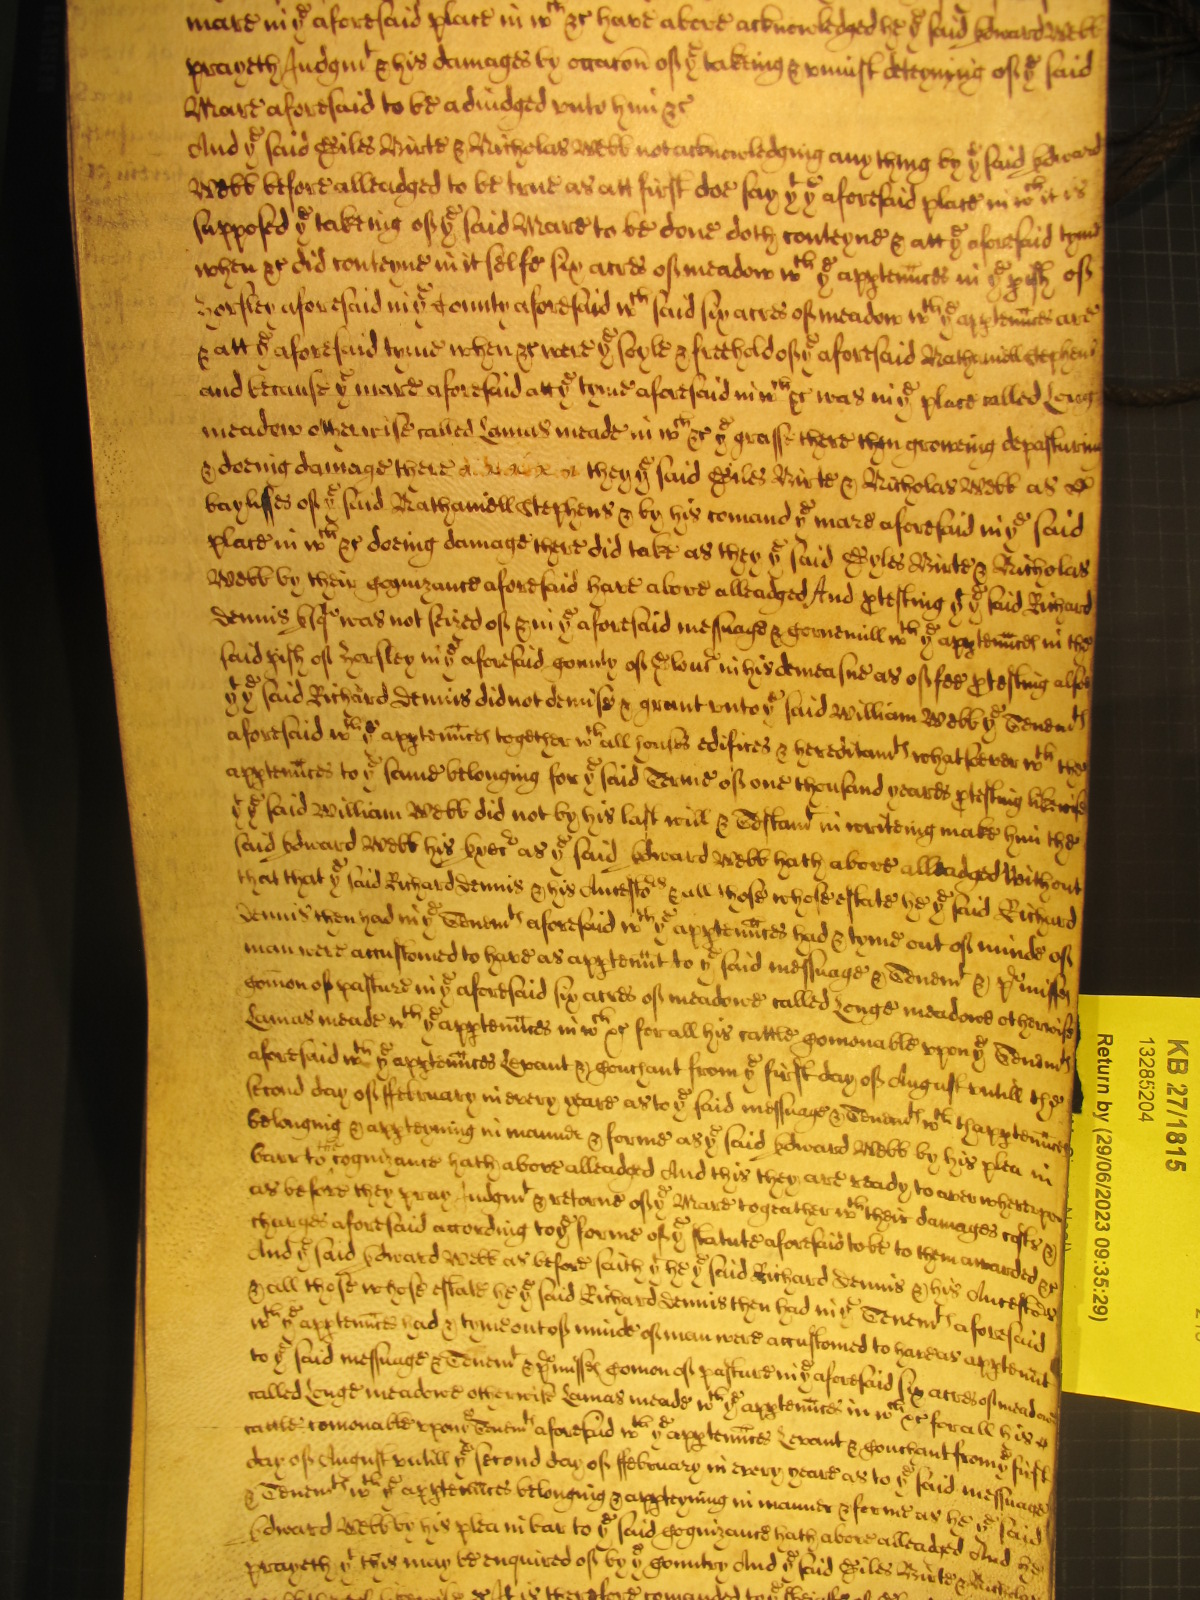 mare in ye aforesaid place in wch &c have above acknowledged he ye said Edward Webb
prayeth Judgmt & his damages by occacon of ye takeing & uniust deteyning of ye said
Mare aforesaid to be adiudged unto him &c
And ye said Giles Birte & Nicholas Webb not acknowledging any thing by ye said Edward
Webb before alleadged to be true as att first doe say yt ye aforesaid place in wch it is
supposed ye takeing of ye said Mare to be done doth conteyne & att ye aforesaid tyme
when &c did conteyne in it selfe six acres of meadow wth ye apptenñces in ye pish of
Horsley aforesaid in ye County aforesaid wch said six acres of meadow wth ye apptenñces are
& att ye aforesaid tyme when &c were ye soyle & freehold of ye aforesaid Nathaniell Stephens
and because ye mare aforesaid att ye tyme aforesaid in wch &c was in ye place called Longe
meadow otherwise called Lamas meade in wch &c ye grasse there then groweing depasturing
& doeing damage there they ye said Giles Birte & Nicholas Webb as
bayliffes of ye said Nathaniell Stephens & by his comand ye mare aforesaid in ye said
place in wch &c doeing damage there did take as they ye said Gyles Birte & Nicholas
Webb by their Cognizance aforesaid have above alleadged And ptesting yt ye said Richard
Dennis Esqr was not seized of & in ye aforesaid messuage & Cornemill wth ye apptenñces in the
said pish of Horsley in ye aforesaid County of Glouc in his demeasne as of fee ptesting also
yt ye said Richard Dennis did not demise & grant unto ye said William Webb ye Tenemts
aforesaid wth ye apptenñces together wth all houses edifices & hereditamts whatsoever wth the
apptenñces to ye same belonging for ye said Terme of one thousand yeares ptesting likewise
yt ye said William Webb did not by his last will & Testamt in writeing make him the
said Edward Webb his Execr as ye said Edward Webb hath above alleadged Without
that that ye said Richard Dennis & his Ancestors & all those whose estate he ye said Richard
Dennis then had in ye Tenemts aforesaid wth ye apptenñces had & tyme out of minde of
man were accustomed to have as apptenñt to ye said messuage & Tenemt & pmisses
Comon of pasture in ye aforesaid six acres of meadowe called Longe meadowe otherwise
Lamas meade wth ye apptenñces in wch &c for all his cattle Comonable upon ye Tenemts
aforesaid wth ye apptenñces Levant & Couchant from ye first day of August untill the
second day of ffebruary in every yeare as to ye said messuage & Tenemts wth thapptenñces
belonging & apptenyning in manner & forme as ye said Edward Webb by his plea in
barr to ye Cognizance hath above alleadged And this they are ready to aver whereupon
as before they pray Judgmt & retorne of ye Mare togeather wth their damages costs &
charges aforesaid according to ye forme of ye statute aforesaid to be to them awarded &c
And ye said Edward Webb as before saith yt he ye said Richard Dennis & his Ancestors
& all those whose estate he ye said Richard Dennis then had in ye Tenemts aforesaid
wth ye apptenñces had & tyme out of minde of man were accustomed to have as apptenñt
to ye said messuage & Tenemt & pmisses Comon of pasture in ye aforesaid six acres of meadow
called Longe meadowe otherwise Lamas meade wth ye apptenñces in wch &c for all his
cattle comonable upon ye Tenemts aforesaid wth ye apptenñces Levant & Couchant from ye first
day of August untill ye second day of ffebruary in every yeare as to ye said messuage
& Tenemts wth ye apptenñces belonging & appteyning in manner & forme as he ye said
Edward Webb by his plea in bar to ye said Cognizance hath above alleadged And he
prayeth yt this may be enquired of by ye Country And ye said Giles Birte & Nicholas
&c It is therefore comanded to ye
KB 27/1815
13285204
Return by (29/06/2023 09:35:29)